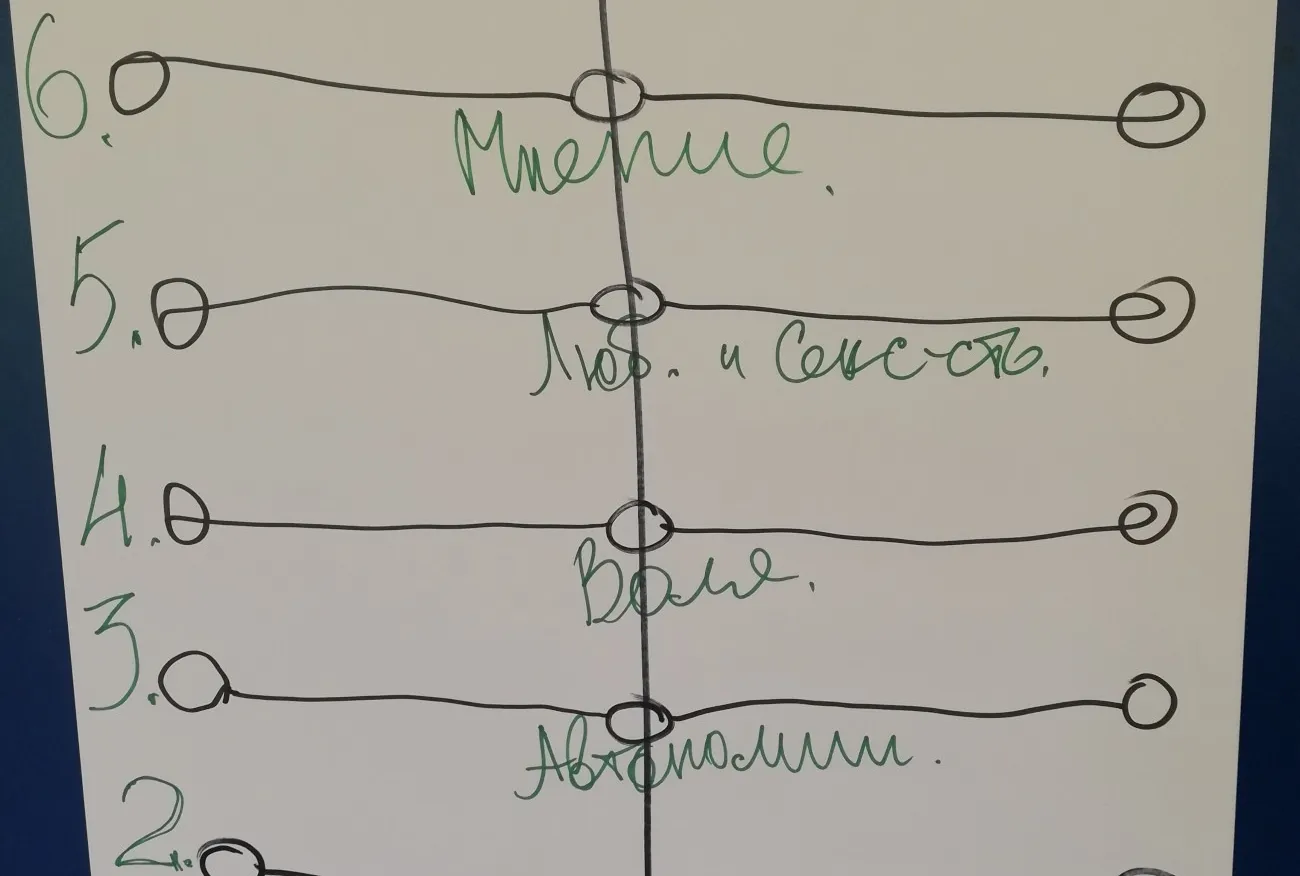 6.
Мнение.
5.
Люб. и Секс-сть.
4.
Воля.
3.
Автономии.
2.